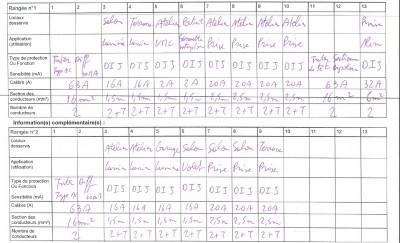 Rangée n°1 1 2 3 4 5 6 7 8 9 10 11 12 13
Locaux desservis Salon Terrasse Atelier Atelier Atelier Atelier Atelier
Application (utilisation) Lumière Lumière VMC Prise Prise Prise Prise
Type de protection Ou Fonction Inter Diff DIS DIS DIS DIS DIS DIS DIS DIS DIS
Sensibilité (mA) Type AC
Calibre (A) 63A 16A 16A 2A 2A 20A 20A 20A 20A 63A 32A
Section des conducteurs (mm²) 16mm² 1,5m 1,5m 1,5m 1,5m 2,5m 2,5m 2,5m 2,5m 16mm² 6m²
Nombre de conducteurs 2 2+T 2+T 2+T 2+T 2+T 2+T 2+T 2+T 2 2
Information(s) complémentaire(s) :
Rangée n°2 1 2 3 4 5 6 7 8 9 10 11 12 13
Locaux desservis Atelier Atelier Garage Salon Salon Salon Terrasse
Application (utilisation) Lumière Lumière Lumière Volet Prise Prise Prise
Type de protection Ou Fonction Inter Diff DIS DIS DIS DIS DIS DIS DIS
Sensibilité (mA)
Calibre (A) 63A 16A 16A 16A 16A 20A 20A 20A
Section des conducteurs (mm²) 16mm² 1,5m 1,5m 1,5m 1,5m 2,5m 2,5m 2,5m
Nombre de conducteurs 2 2+T 2+T 2+T 2+T 2+T 2+T 2+T